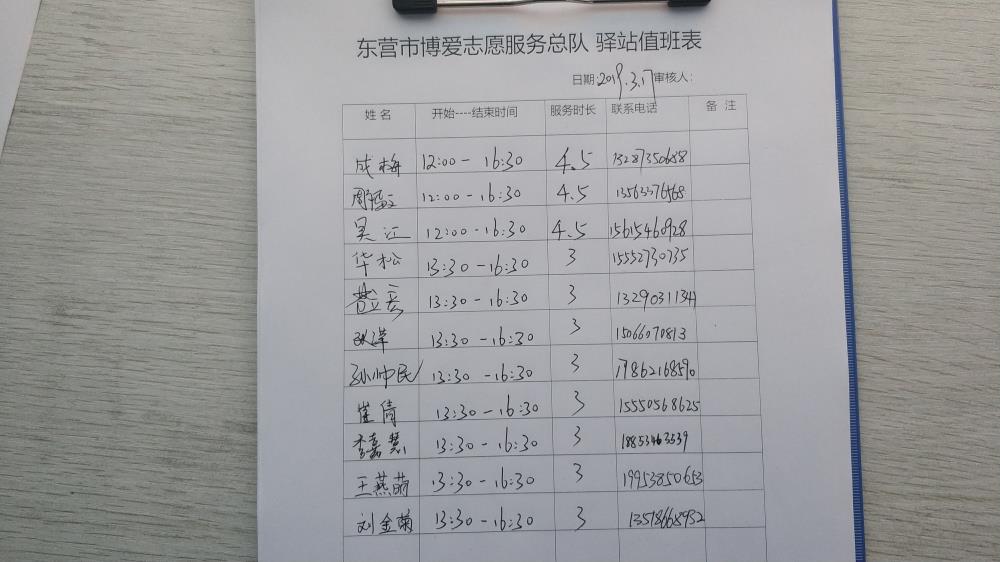 东营市博爱志愿服务总队 驿站值班表
日期:2019.3.17审核人:
姓名 开始----结束时间 服务时长 联系电话 备 注
成梅 12:00-16:30 4.5 13287350688
12:00-16:30 4.5
吴江 12:00-16:30 4.5 15615460928
华松 13:30-16:30 3 15552730735
13:30-16:30 3 13290311341
13:30-16:30 3
孙帅民 13:30-16:30 3 17862168590
崔倩 13:30-16:30 3 15550568625
李嘉慧 13:30-16:30 3
王燕萌 13:30-16:30 3 19953850653
刘金菊 13:30-16:30 3 13518668932